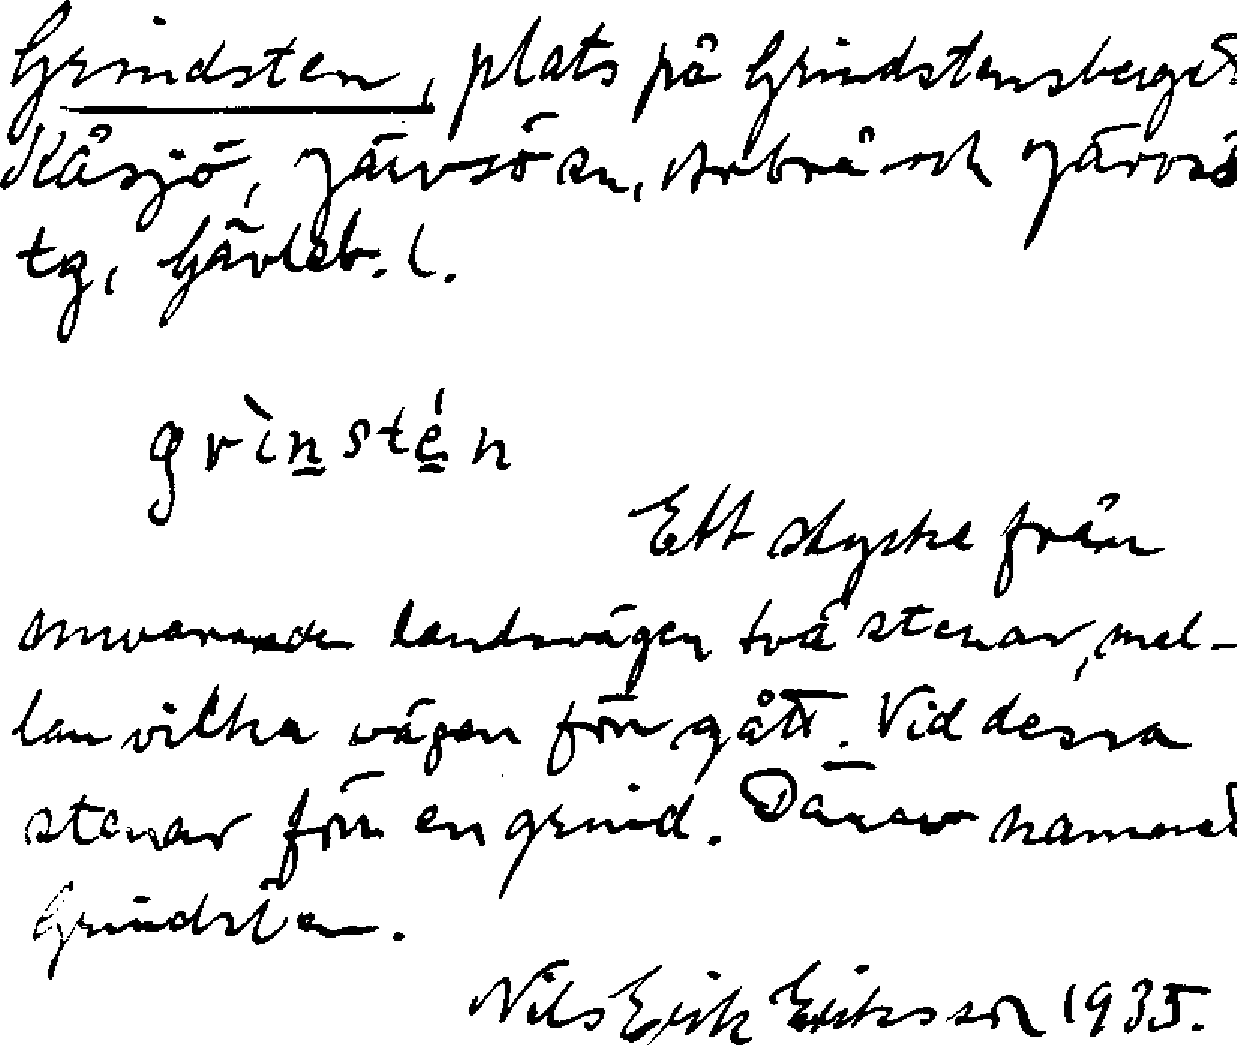 Grindsten, plats på Grindstensberget
Kåsjö, Järvsö sn, Arbrå och Järvsö
tg, Gävleb. l.
grìnstén
Ett stycke från
nuvarande landsvägen två stenar, mel-
lan vilka vägen förr gått. Vid dessa
stenar förr en grind. Därav namnet
Grindsten.
Nils Erik Eriksson 1935.